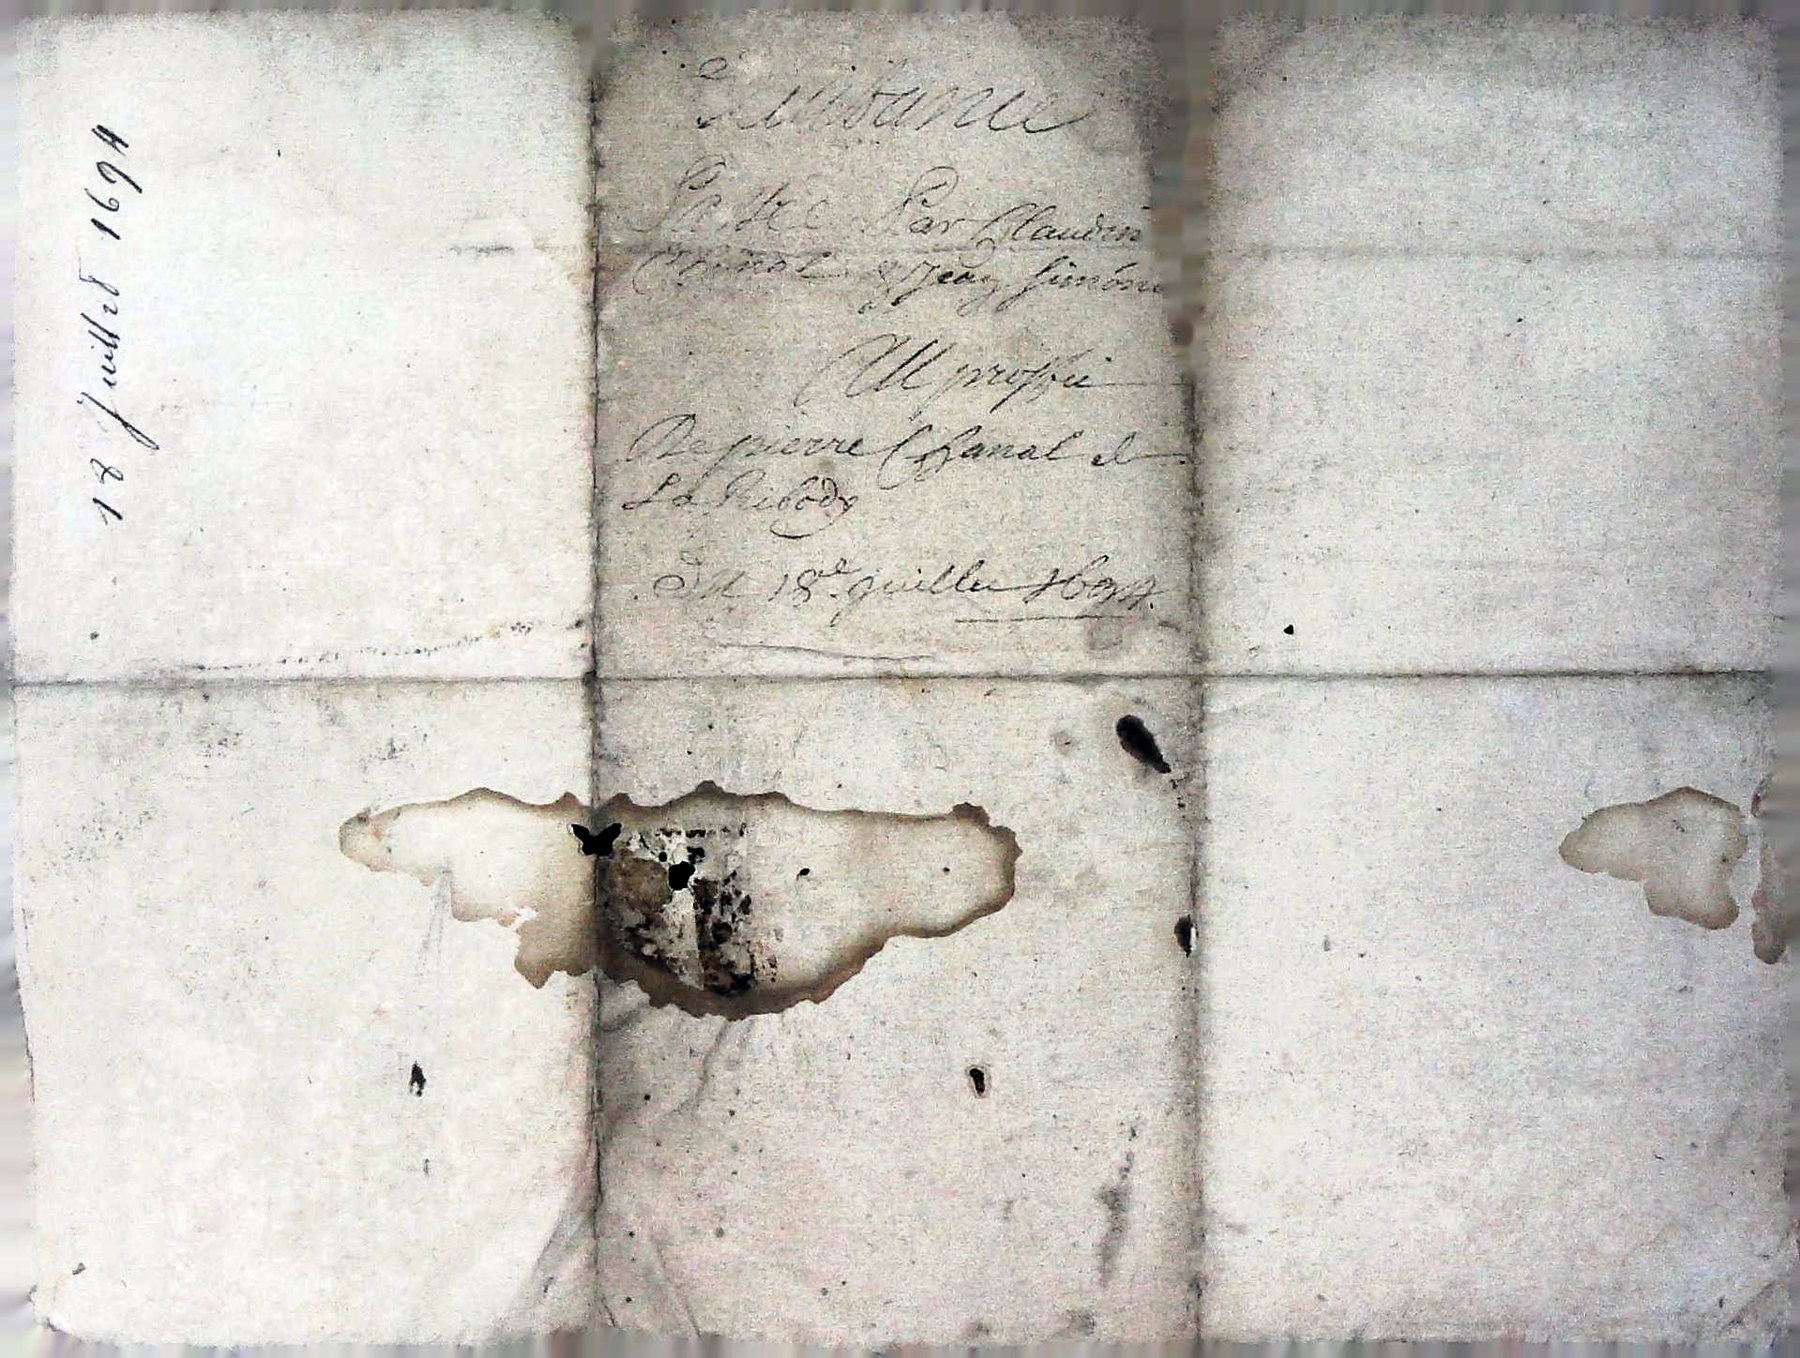 18 Juillet 1694
Quittance
Par Claudin
Chanal & Jean Simon
Au proffit
De pierre Chanal de
La Ribody
Du 18e. juillet 1694.